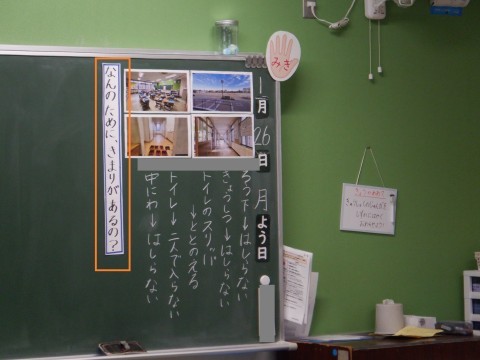 みぎ
1月26日月よう日
ろう下→はしらない
きょうしつ→はしらない
トイレのスリッパ
→ととのえる
トイレ→二人で入らない
中にわ→はしらない
なんのために、きまりがあるの?